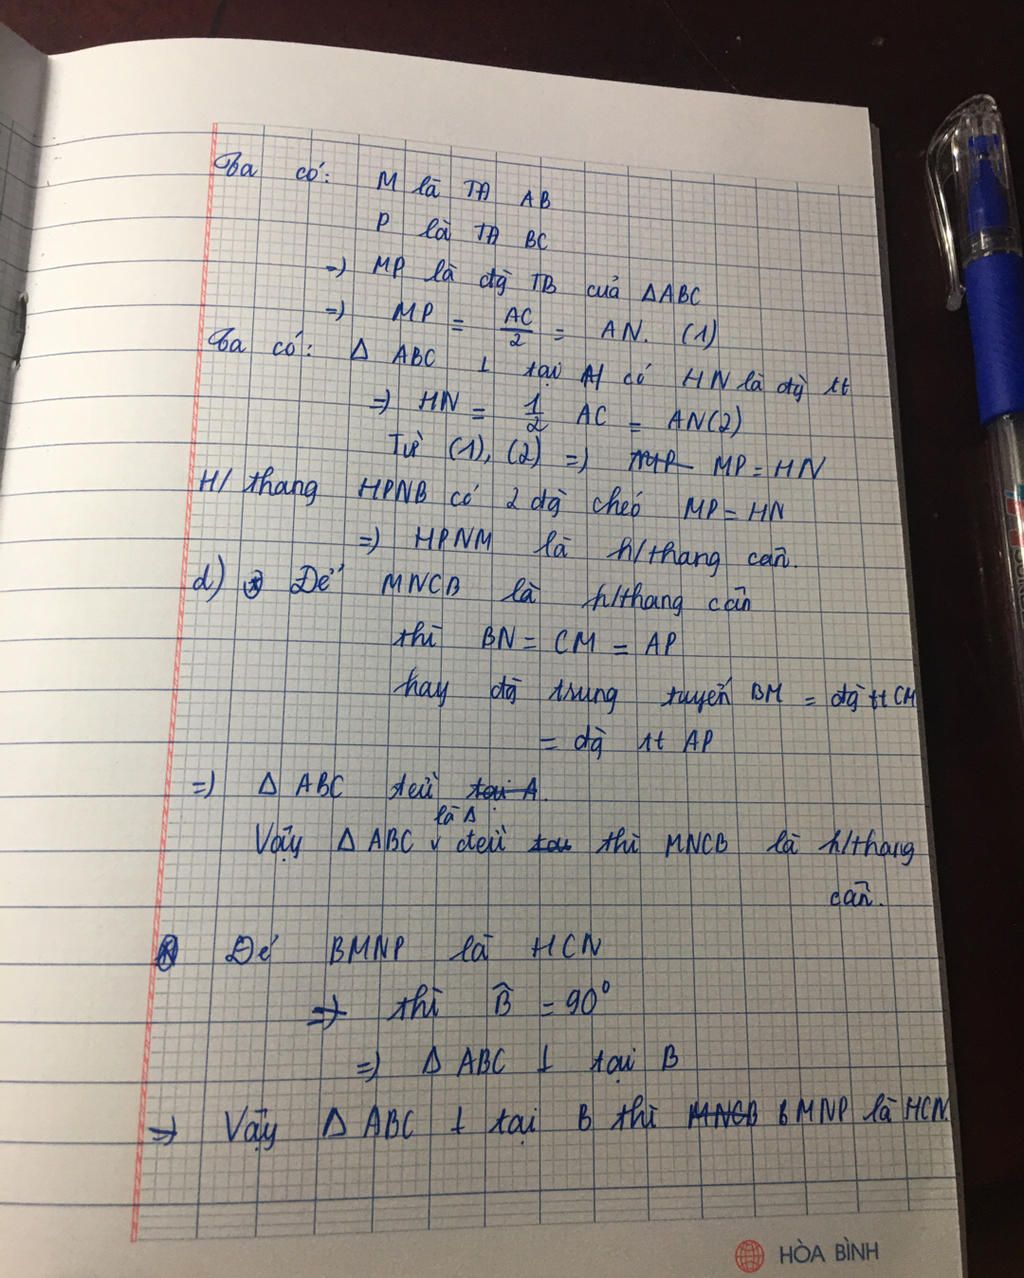 Ta có: M là TĐ AB
P là TĐ BC
=) MP là đg TB của ΔABC
=) MP = AC/2 = AN. (1)
Ta có: Δ ABC ⊥ tại H có HN là đg tt
=) HN = 1/2 AC = AN(2)
Từ (1), (2) =) MP = HN
H/ thang HPNB có 2 đg chéo MP = HN
=) HPNM là h/thang cân.
d) Để MNCB là h/thang cân
thì BN = CM = AP
hay đg trung tuyến BM = đg tt CM
= đg tt AP
=) Δ ABC đều tại A.
Vậy Δ ABC là Δ đều thì MNCB là h/thang
cân.
Để BMNP là HCN
=) thì B̂ = 90°
=) Δ ABC ⊥ tại B
=) Vậy Δ ABC ⊥ tại B thì MNCB BMNP là HCN
HÒA BÌNH